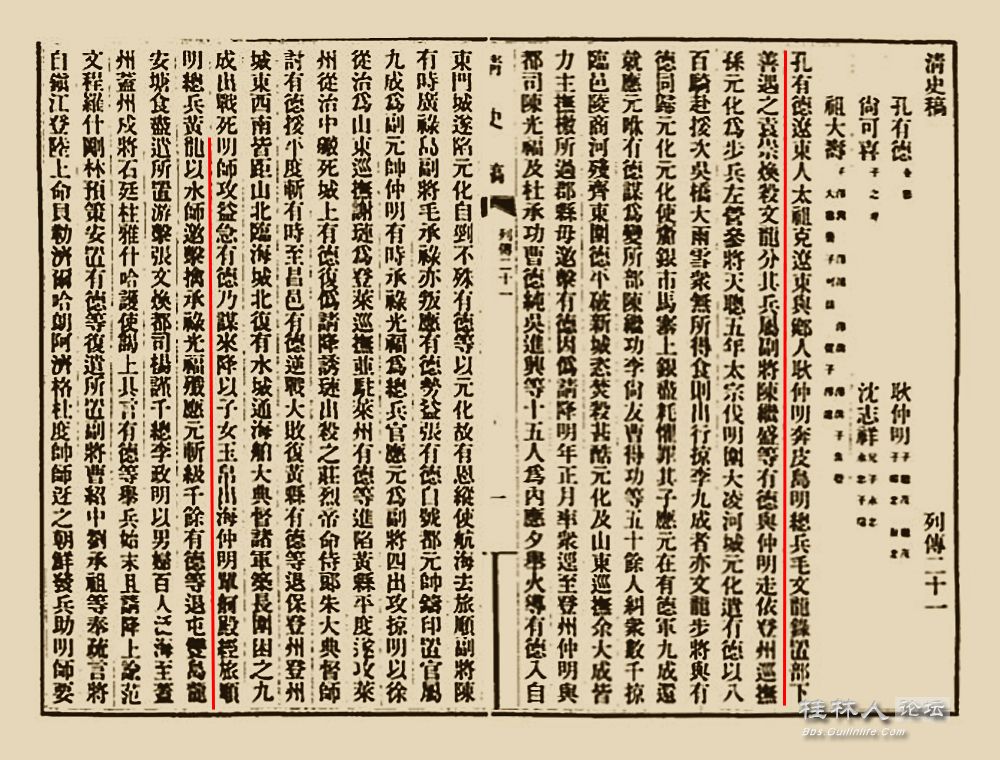 清史稿 列傳二十一
孔有德 耿仲明 子繼茂
尚可喜 子之孝 沈志祥 兄子永忠
祖大壽
孔有德遼東人太祖克遼東與鄉人耿仲明奔皮島明總兵毛文龍錄置部下
善遇之袁崇煥殺文龍分其兵屬副將陳繼盛等有德與仲明走依登州巡撫
孫元化爲步兵左營參將天聰五年太宗伐明圍大凌河城元化遣有德以八
百騎赴援次吳橋大雨雪衆無所得食則出行掠李九成者亦文龍步將與有
德同歸元化元化使齎銀市馬塞上銀盡耗懼罪其子應元在有德軍九成還
就應元咻有德謀爲變所部陳繼功李尚友曹得功等五十餘人糾衆數千掠
臨邑陵商河殘齊東圍德平破新城恣焚殺甚酷元化及山東巡撫余大成皆
力主撫檄所過郡縣毋邀擊有德因僞請降明年正月率衆逕至登州仲明與
都司陳光福及杜承功曹德純吳進興等十五人爲內應夕舉火導有德入自
清史稿 列傳二十一 一
東門城遂陷元化自剄不殊有德等以元化故有恩縱使航海去旅順副將陳
有時廣祿島副將毛承祿亦叛應有德勢益張有德自號都元帥鑄印置官屬
九成爲副元帥仲明有時承祿光福爲總兵官應元爲副將四出攻掠明以徐
從治爲山東巡撫謝璉爲登萊巡撫並駐萊州有德等進陷黃縣平度遂攻萊
州從治中礮死城上有德復僞請降誘璉出殺之莊烈帝命侍郎朱大典督師
討有德援平度斬有時至昌邑有德逆戰大敗復黃縣有德等退保登州登州
城東西南皆距山北臨海城北復有水城通海舶大典督諸軍築長圍困之九
成出戰死明師攻益急有德乃謀來降以子女玉帛出海仲明單舸殿經旅順
明總兵黃龍以水師邀擊擒承祿光福殲應元斬級千餘有德等退屯雙島龍
安塘食盡遣所置游擊張文煥都司楊謹千總李政明以男婦百人泛海至蓋
州蓋州戍將石廷柱雅什哈護使謁上具言有德等舉兵始末且請降上諭范
文程羅什剛林預策安置有德等復遣所置副將曹紹中劉承祖等奉疏言將
自鎭江登陸上命貝勒濟爾哈朗阿濟格杜度帥師迓之朝鮮發兵助明師要
桂林人论坛
Bbs.Guilinlife.Com